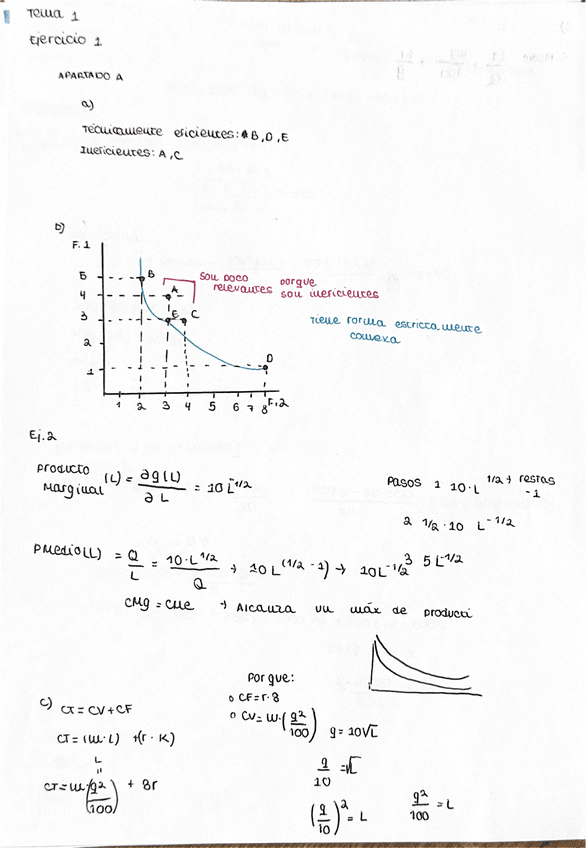 Tema 1
Ejercicio 1
APARTADO A
a)
Técnicamente eficientes: B, D, E
Ineficientes: A, C
b)
F. 1
5
4
3
2
1
B
A
E C
D
1 2 3 4 5 6 7 8 F. 2
son poco relevantes porque son ineficientes
Tiene forma estrictamente convexa
Ej. 2
Producto Marginal (L) = ∂g(L)/∂L = 10 L^-1/2
Pasos 1 10·L^1/2 → restas -1
2 1/2·10 L^-1/2
3 5 L^-1/2
PMedio(L) = Q/L = 10·L^1/2/Q → 10 L^(1/2 - 1) → 10L^-1/2
CMg = CMe → Alcanza un máx de producti
c) CT = CV + CF
CT = (w·L) + (r·K)
L
"
CT = w·(q²/100) + 8r
Porque:
o CF = r·8
o CV = w·(q²/100)
q = 10√L
q/10 = √L
(q/10)² = L
q²/100 = L